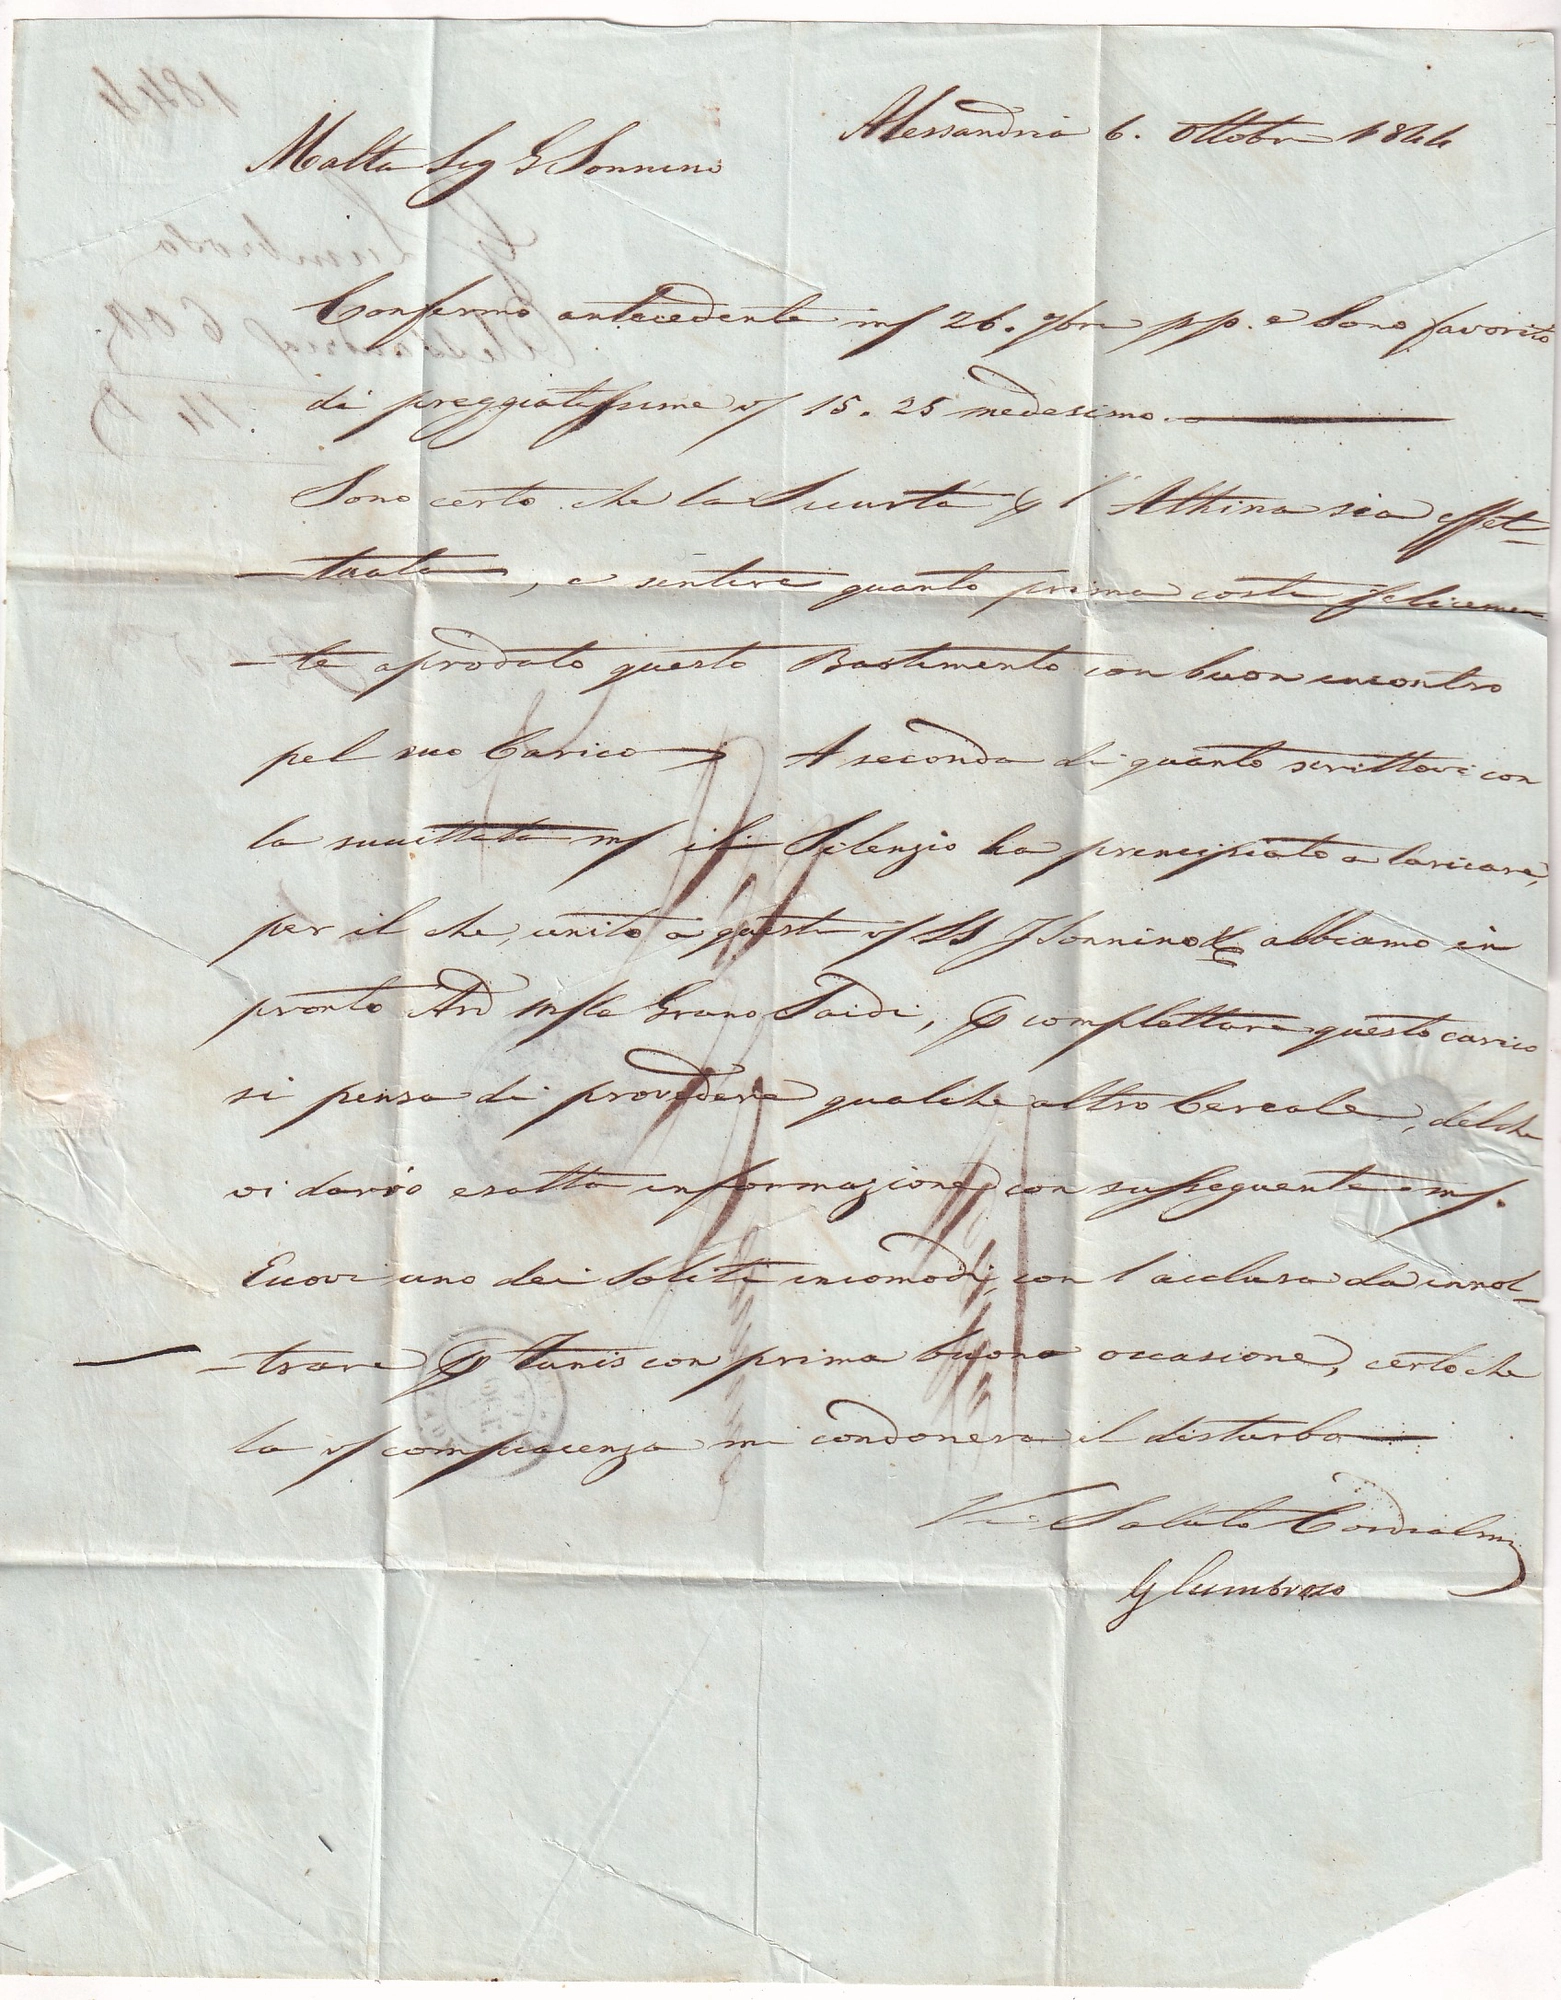 Alessandria 6. Ottobre 1844
Malta Sig G Sonnino
Confermo antecedente m/ 26. 7bre pp. e sono favorito
di preggiatissime v/ 15. 25 medesimo.
Sono certo che la Sicurtà l'Athina sia effet-
-tuata, e sentire quanto prima costì felicemen
-te aprodato questo Bastimento con buon incontro
pel suo Carico A seconda di quanto scrittovi con
la sucittata m/ il Silenzio ha principiato a caricare,
per il che, unito a questi v/ SS J Sonnino & C abbiamo in
pronto Ard Grano Saidi, complettare questo carico
si pensa di provedere qualche altro Cereale, del che
vi darrò esatta informazione con susseguente m/.
Eccovi uno dei soliti incomodi, con l'acclusa da innol-
-trare Tunis con prima buona occasione, certo che
la v/ compiacenza mi condonerà il disturbo
Vi Saluto Cordialm
G Lumbroso
1844
G Lumbroso
Alessandria 6 Ott